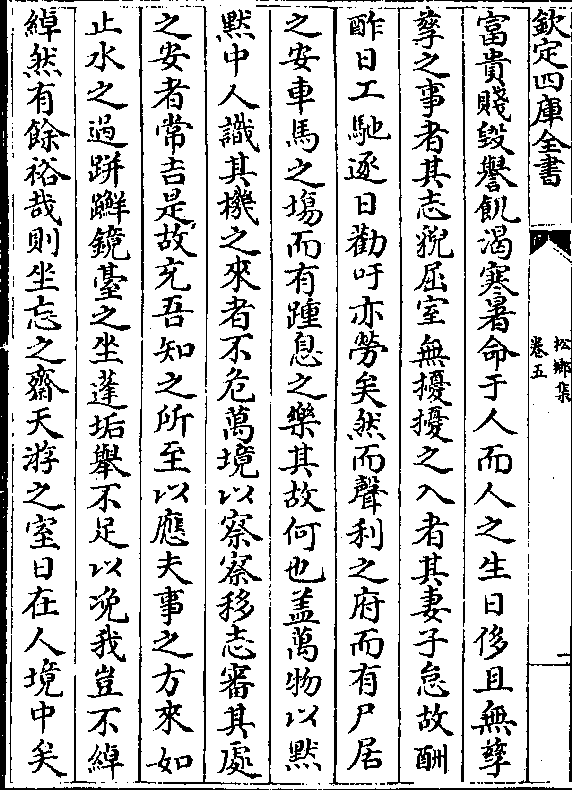 欽定四庫全書
松鄉集
卷五
富貴賤毀譽飢渴寒暑命于人而人之生日侈且無孳
孳之事者其志猊屈室無擾擾之入者其妻子怠故酬
酢日工馳逐日勸吁亦勞矣然而聲利之府而有尸居
之安車馬之塲而有踵息之樂其故何也盖萬物以默
默中人識其機之來者不危萬境以察察移志審其處
之安者常吉是故充吾知之所至以應夫事之方來如
止水之過跰𨇤鏡臺之坐蓬垢舉不足以凂我豈不綽
綽然有餘裕哉則坐忘之齋天游之室日在人境中矣